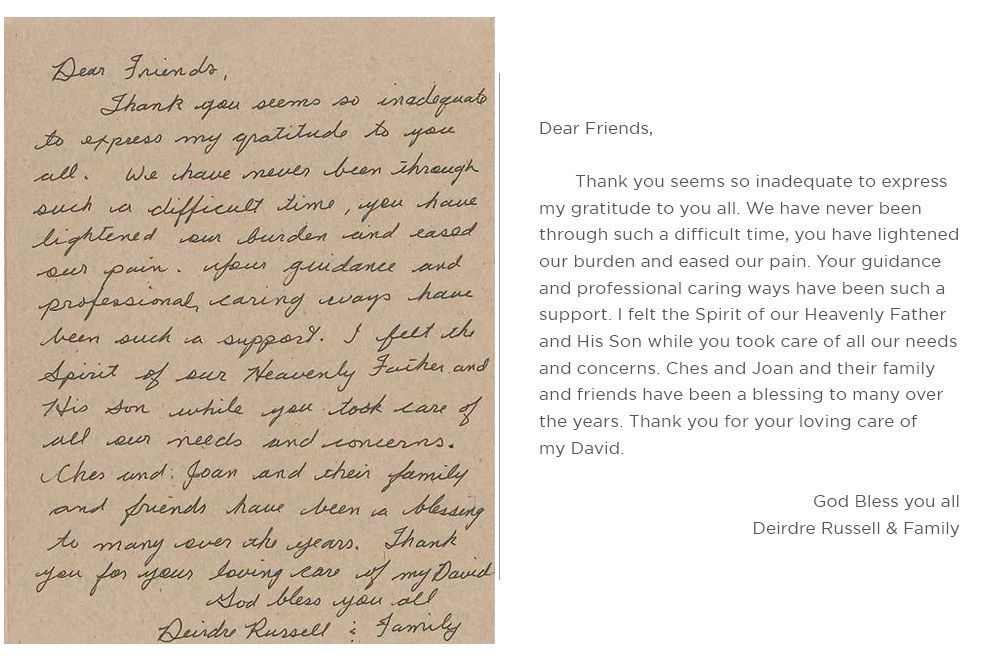 Dear Friends,
Thank you seems so inadequate
to express my gratitude to you
all. We have never been through
such a difficult time, you have
lightened our burden and eased
our pain. Your guidance and
professional, caring ways have
been such a support. I felt the
Spirit of our Heavenly Father and
His Son while you took care of
all our needs and concerns.
Ches and Joan and their family
and friends have been a blessing
to many over the years. Thank
you for your loving care of my David
God bless you all
Deirdre Russell & Family
Dear Friends,
Thank you seems so inadequate to express
my gratitude to you all. We have never been
through such a difficult time, you have lightened
our burden and eased our pain. Your guidance
and professional caring ways have been such a
support. I felt the Spirit of our Heavenly Father
and His Son while you took care of all our needs
and concerns. Ches and Joan and their family
and friends have been a blessing to many over
the years. Thank you for your loving care of
my David.
God Bless you all
Deirdre Russell & Family